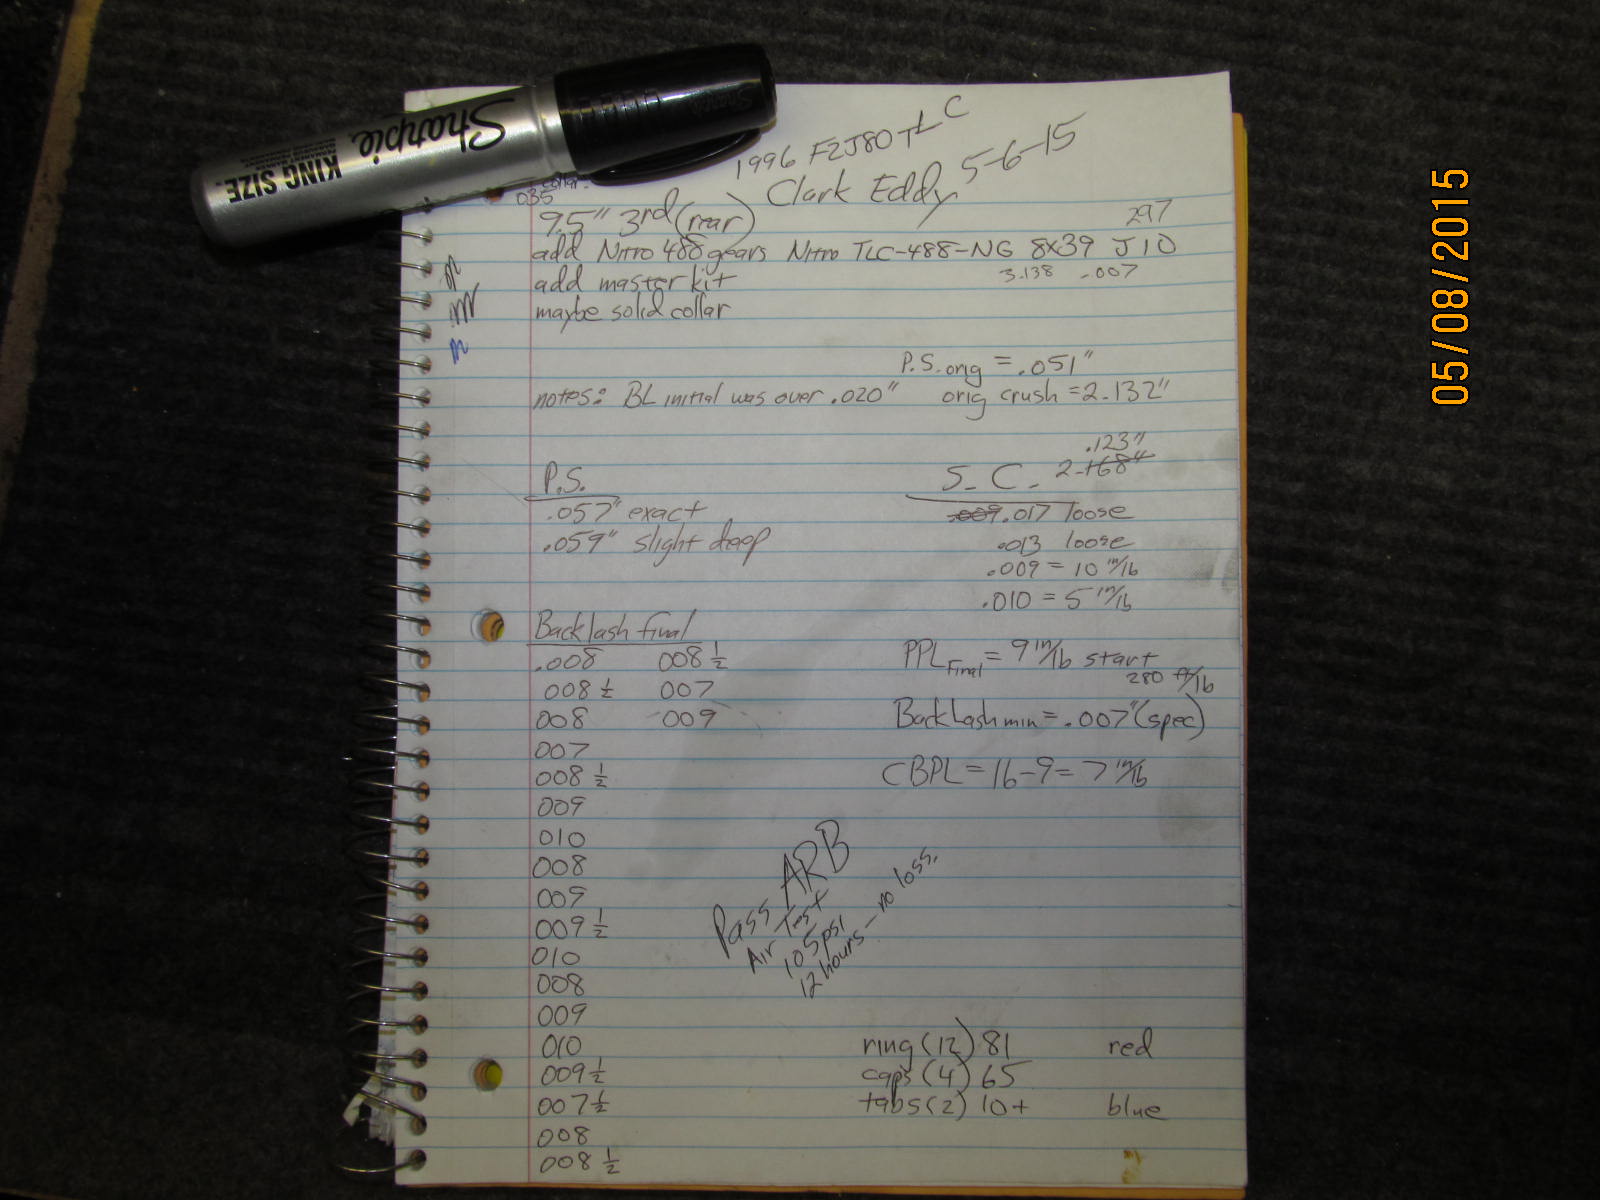 Sharpie
KING SIZE
PERMANENT MARKER
1996 FZJ80 TLC
Clark Eddy 5-6-15
035 collar
9.5" 3rd (rear)
297
add Nitro 488 gears Nitro TLC-488-NG 8x39 J10
add master kit
3.138 .007
maybe solid collar
P.S. orig = .051"
notes: BL initial was over .020" orig crush = 2.132"
.123"
P.S.
S.C. 2.168"
.057" exact
.009 .017 loose
.059" slight deep
.013 loose
.009 = 10 in/lb
.010 = 5 in/lb
Backlash final
.008 008 1/2
PPL Final = 9 in/lb start
280 ft/lb
008 1/2 007
008 009
Backlash min = .007" (spec)
007
008 1/2
CBPL = 16-9 = 7 in/lb
009
010
008
009
009 1/2
010
008
009
010
009 1/2
007 1/2
008
008 1/2
Pass ARB
Air Test
105 psi
12 hours - no loss.
ring (12) 81 red
caps (4) 65
tabs (2) 10+ blue
05/08/2015